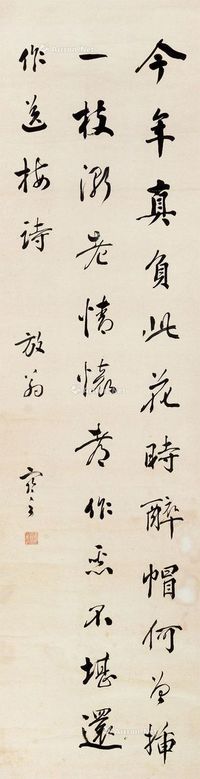 今年真負此花時醉帽何曾插
一枝漸老情懷多作惡不堪還
作送梅詩 放翁